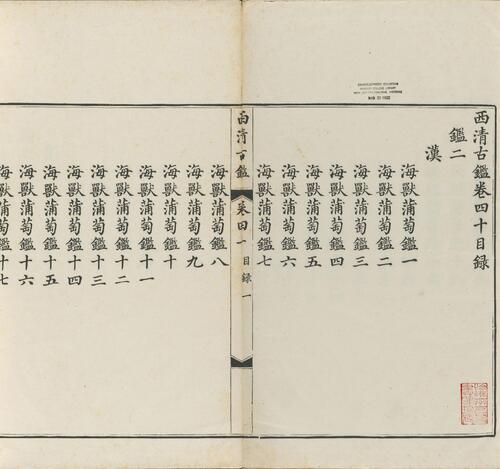 西清古鑑卷四十目錄
鑑二
漢
海獸蒲萄鑑一
海獸蒲萄鑑二
海獸蒲萄鑑三
海獸蒲萄鑑四
海獸蒲萄鑑五
海獸蒲萄鑑六
海獸蒲萄鑑七
西清古鑑 卷四十 目錄 一
海獸蒲萄鑑八
海獸蒲萄鑑九
海獸蒲萄鑑十
海獸蒲萄鑑十一
海獸蒲萄鑑十二
海獸蒲萄鑑十三
海獸蒲萄鑑十四
海獸蒲萄鑑十五
海獸蒲萄鑑十六
海獸蒲萄鑑十七